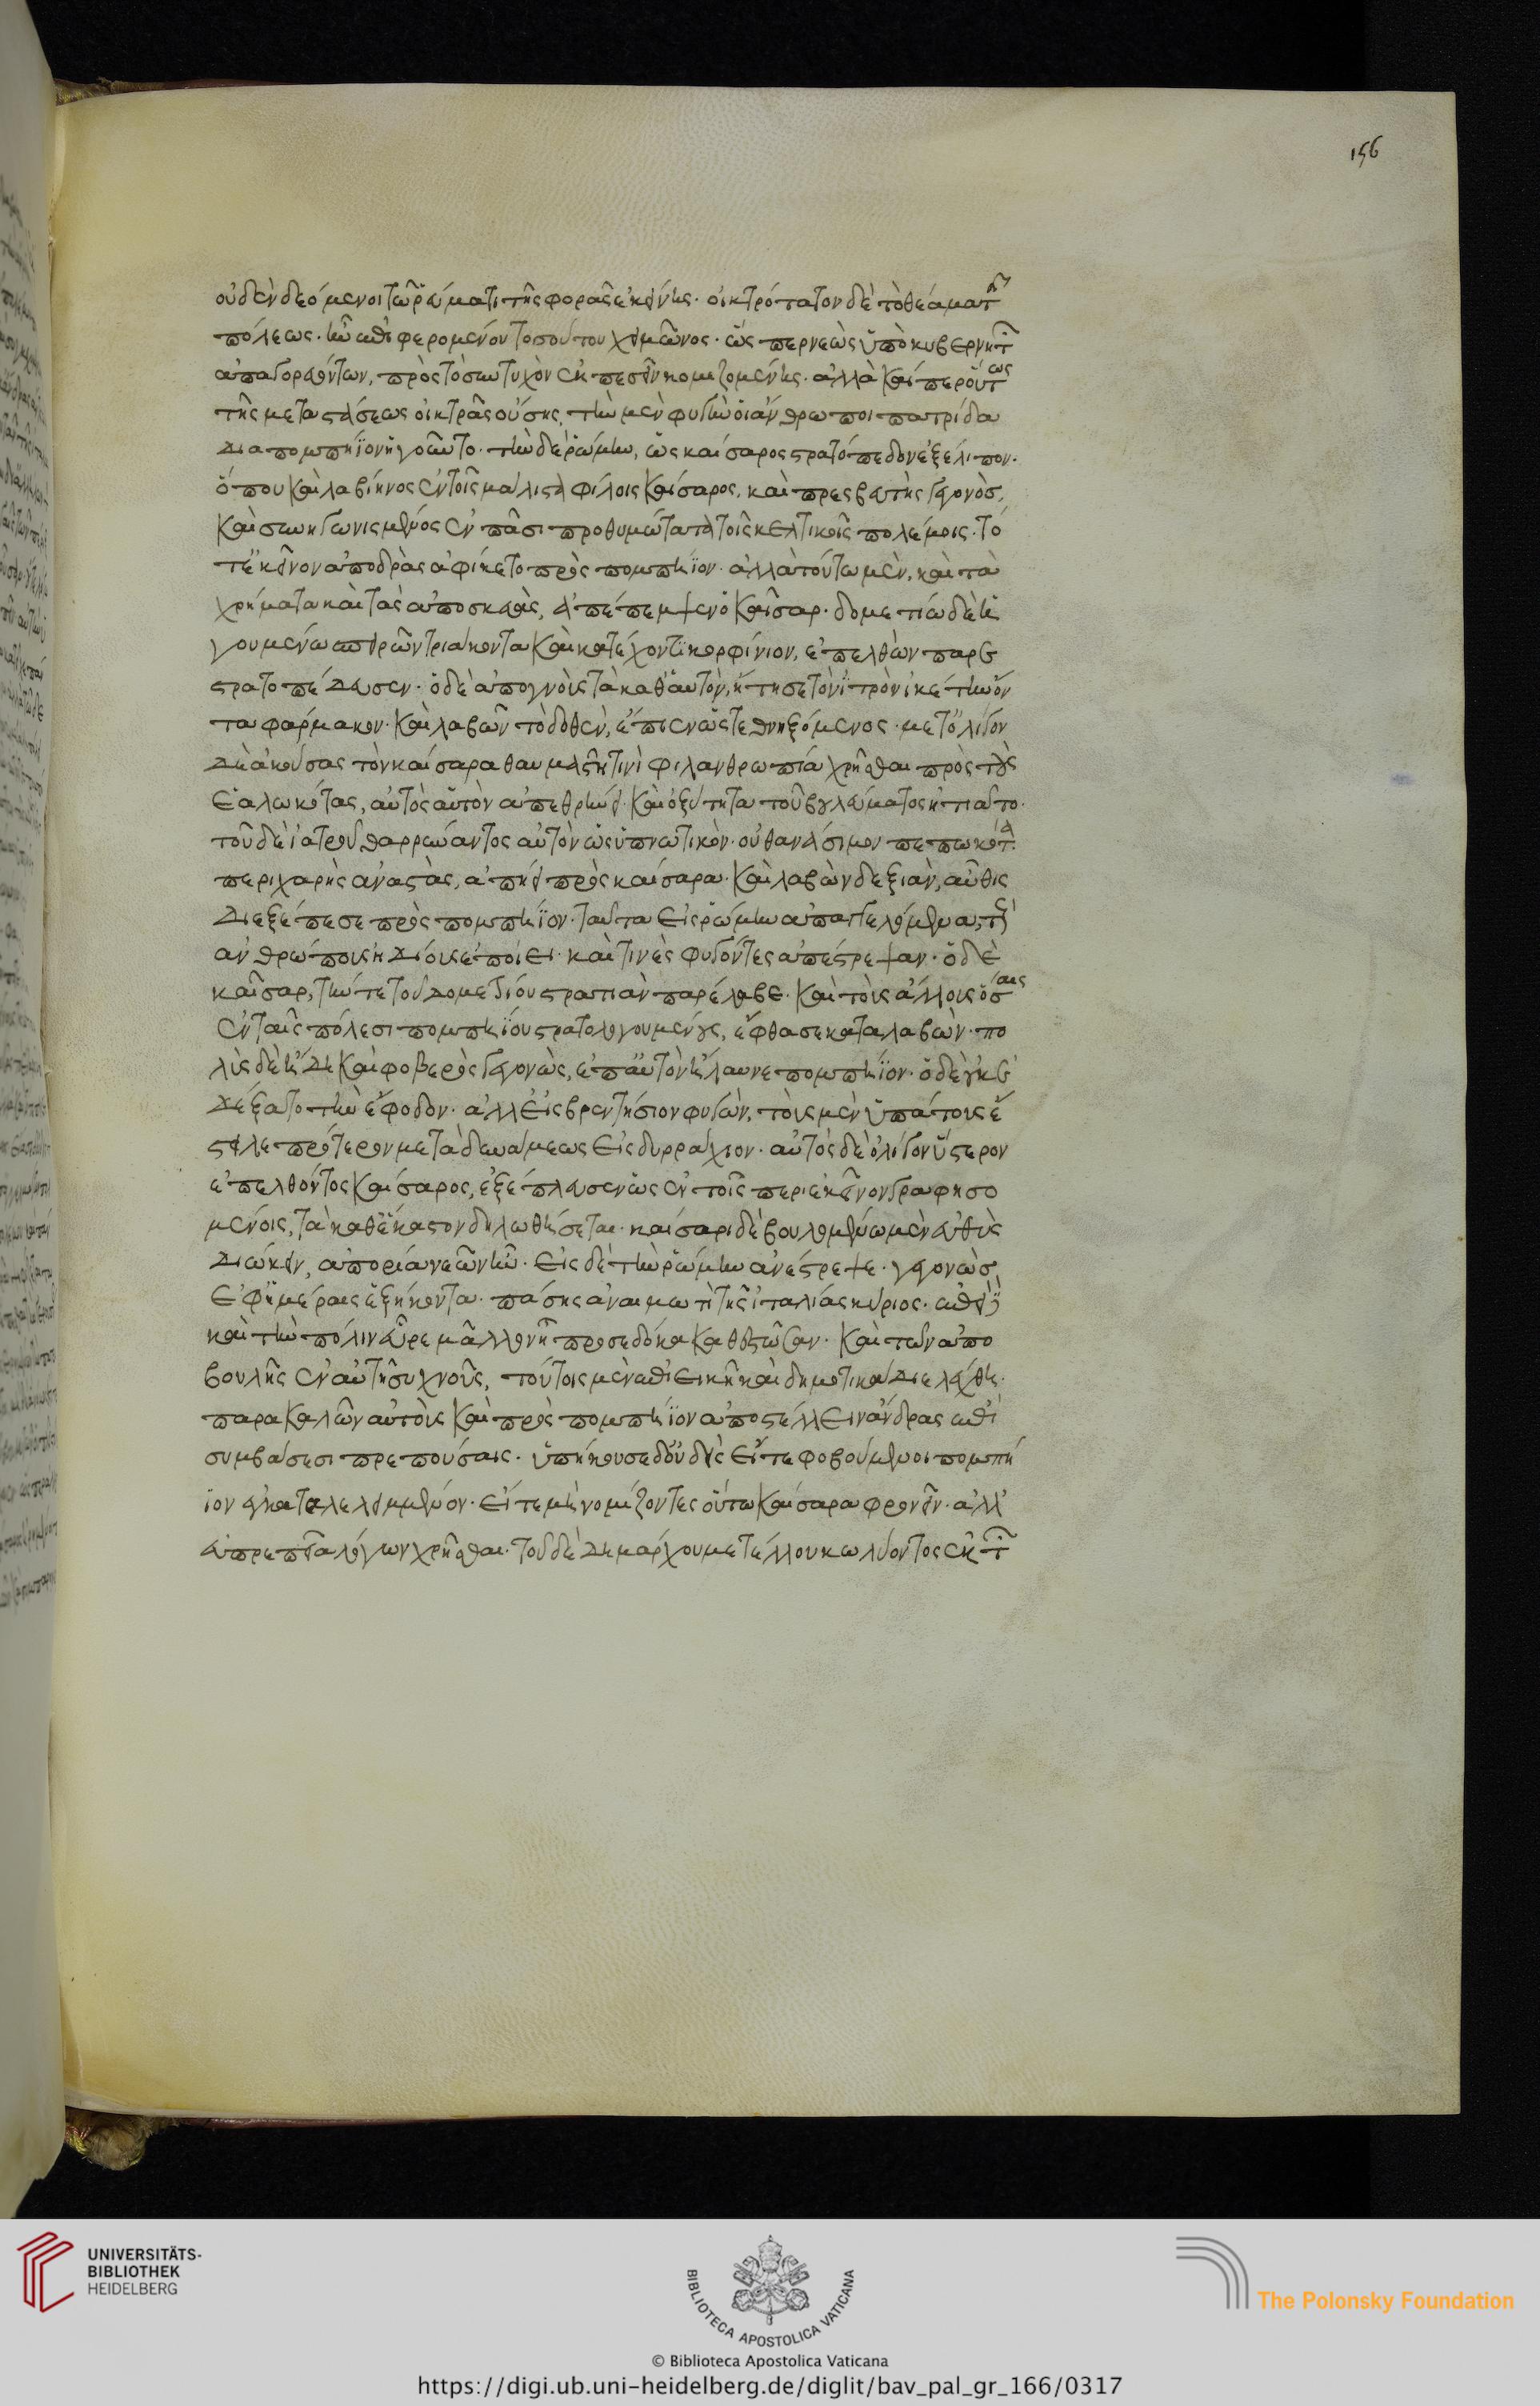 156
οὐδὲν δεόμενοι τῶ ῥεύματι τῆς φορᾶς ἐκείνης. οἰκτρότατον δὲ τὸ θέαμα τῆς
πόλεως. ἦν ἐπιφερομένου τοσούτου χειμῶνος. ὥσπερ νεὼς ὑπὸ κυβερνητῶν
ἀπαγορευόντων, πρὸς τὸ συντυχὸν ἐκπεσεῖν κομιζομένης. ἀλλὰ καίπερ οὕτως
τῆς μεταστάσεως οἰκτρᾶς οὔσης, τὴν μὲν φυγὴν οἱ ἄνθρωποι πατρίδα
διὰ πομπήϊον ἡγοῦντο. τὴν δὲ ῥώμην, ὡς καίσαρος στρατόπεδον ἐξέλιπον.
ὅπου καὶ λαβίηνος ἐν τοῖς μάλιστα φίλοις καίσαρος, καὶ πρεσβευτὴς γεγονὼς,
καὶ συνηγωνισμένος ἐν πᾶσι προθυμότατα τοῖς κελτικοῖς πολέμοις. τό
τ' ἐκεῖνον ἀποδρὰς ἀφίκετο πρὸς πομπήϊον. ἀλλὰ τούτω μὲν, καὶ τὰ
χρήματα καὶ τὰς ἀποσκευὰς, ἀπέπεμψεν ὁ καῖσαρ. δομετίω δὲ ἡ
γουμένω σπειρῶν τριάκοντα καὶ κατέχοντι κορφίνιον, ἐπελθὼν παρε
στρατοπέδευσεν. ὁ δὲ ἀπογνοὺς τὰ καθ' αὑτὸν, ἤτησε τὸν ἰατρὸν οἰκέτην ὄν
τα φάρμακον. καὶ λαβὼν τὸ δοθὲν, ἔπιεν ὡς τεθνηξόμενος. μετ' ὀλίγον
δὲ ἀκούσας τὸν καίσαρα θαυμαστῆ τινὶ φιλανθρωπία χρῆσθαι πρὸς τοὺς
ἑαλωκότας, αὐτὸς αὑτὸν ἀπεθρήνει. καὶ ὀξύτητα τοῦ βουλεύματος ἠτιᾶτο.
τοῦ δὲ ἰατροῦ θαρρύναντος αὐτὸν ὡς ὑπνωτικὸν. οὐ θανάσιμον πεπωκότα
περιχαρὴς ἀναστὰς, ἀπήει πρὸς καίσαρα. καὶ λαβὼν δεξιὰν, αὖθις
διεξέπεσε πρὸς πομπήϊον. ταῦτα εἰς ῥώμην ἀπαγγελλόμενα, τοὺς
ἀνθρώπους ἡδίους ἐποίει. καὶ τινὲς φυγόντες ἀπέστρεψαν. ὁ δὲ
καῖσαρ, τήν τε τοῦ δομετίου στρατιὰν παρέλαβε. καὶ τοὺς ἄλλους ὅσους
ἐν ταῖς πόλεσι πομπηίου στρατολογουμένους, ἔφθασε καταλαβών. πο
λὺς δὲ ἤδη καὶ φοβερὸς γεγονὼς, ἐπ' αὐτὸν ἤλαυνε πομπήϊον. ὁ δὲ οὐκ ἐ
δέξατο τὴν ἔφοδον. ἀλλ' εἰς βρεντήσιον φυγὼν, τοὺς μὲν ὑπάτους ἔ
στειλε πρότερον μετὰ δυνάμεως εἰς δυρράχιον. αὐτὸς δὲ ὀλίγον ὕστερον
ἐπελθόντος καίσαρος, ἐξέπλευσεν ὡς ἐν τοῖς περὶ ἐκεῖνον γραφησο
μένοις, τὰ καθέκαστον δηλωθήσεται. καίσαρι δὲ βουλομένω μὲν εὐθὺς
διώκειν, ἀπορία νεῶν ἦν. εἰς δὲ τὴν ῥώμην ἀνέστρεψε. γεγονὼς
ἐφ' ἡμέραις ἑξήκοντα. πάσης ἀναιμωτὶ τῆς ἰταλίας κύριος. ἐπεὶ
καὶ τὴν πόλιν εὗρε μᾶλλον ἢ προσεδόκα καθεστῶσαν. καὶ τῶν ἀπὸ
βουλῆς ἐν αὐτῆ συχνοὺς, τούτοις μὲν ἐπιεικῆ καὶ δημοτικὰ διελέχθη.
παρακαλῶν αὐτοὺς καὶ πρὸς πομπήϊον ἀποστέλλειν ἄνδρας ἐπὶ
συμβάσεσι πρεπούσαις. ὑπήκουσε δ' οὐδεὶς εἴτε φοβούμενοι πομπή
ϊον ἐγκαταλελειμμένον. εἴτε μὴ νομίζοντες οὕτω καίσαρα φρονεῖν. ἀλλ'
εὐπρεπεία λόγων χρῆσθαι. τοῦ δὲ δημάρχου μετέλλου κωλύοντος ἐκ τῶν
UNIVERSITÄTS-
BIBLIOTHEK
HEIDELBERG
BIBLIOTECA APOSTOLICA VATICANA
The Polonsky Foundation
© Biblioteca Apostolica Vaticana
https://digi.ub.uni-heidelberg.de/diglit/bav_pal_gr_166/0317